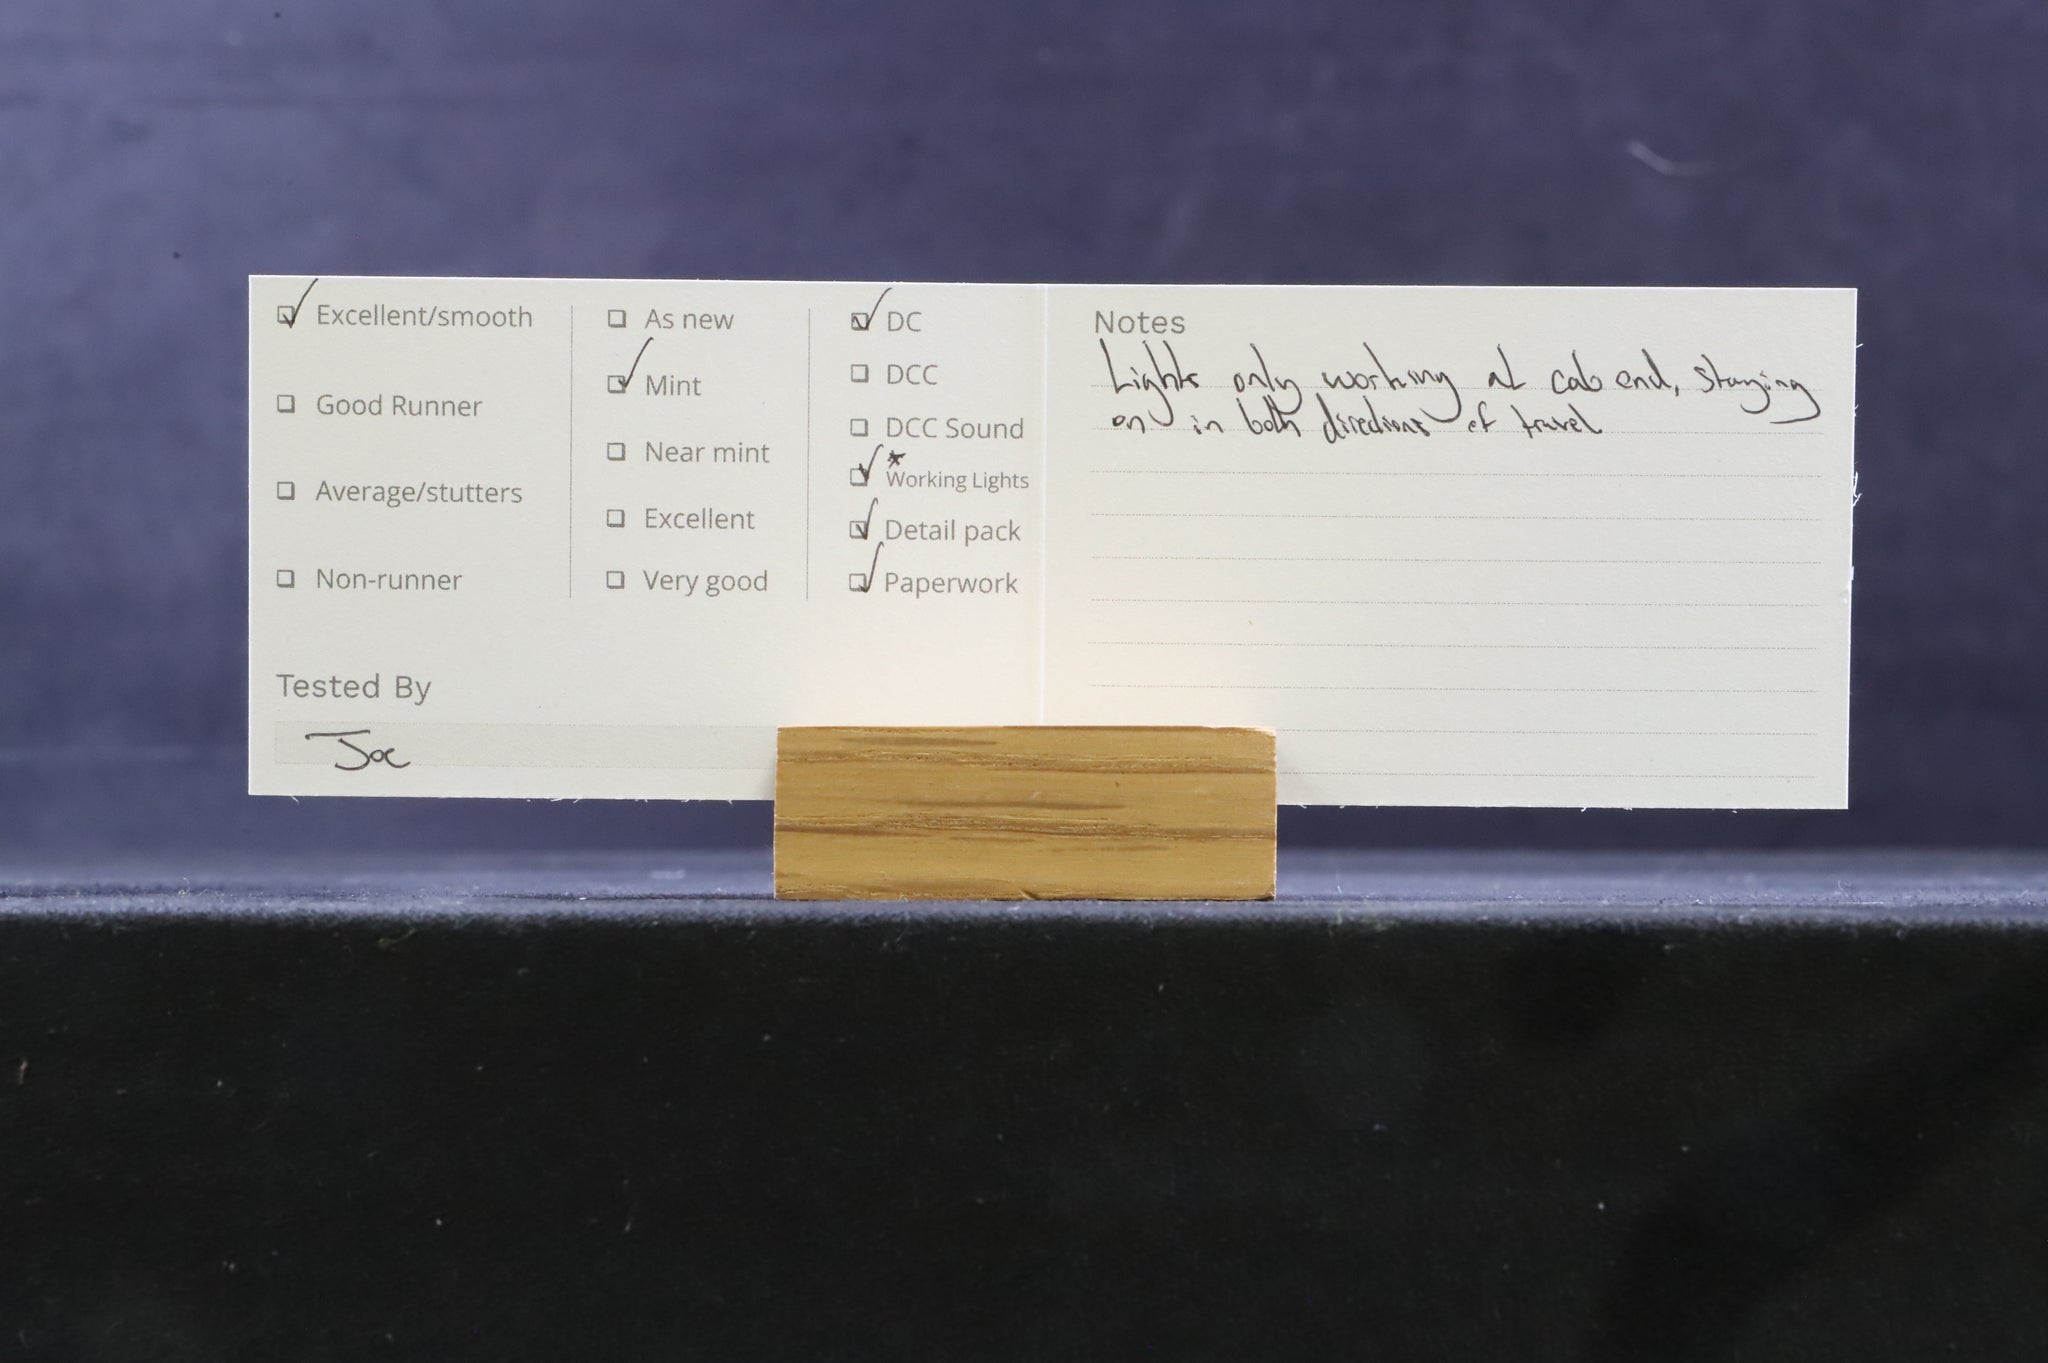 ☑ Excellent/smooth
☐ Good Runner
☐ Average/stutters
☐ Non-runner
☐ As new
☑ Mint
☐ Near mint
☐ Excellent
☐ Very good
☑ DC
☐ DCC
☐ DCC Sound
☑ * Working Lights
☑ Detail pack
☑ Paperwork
Tested By
Joe
Notes
Lights only working at cab end, staying
on in both directions of travel